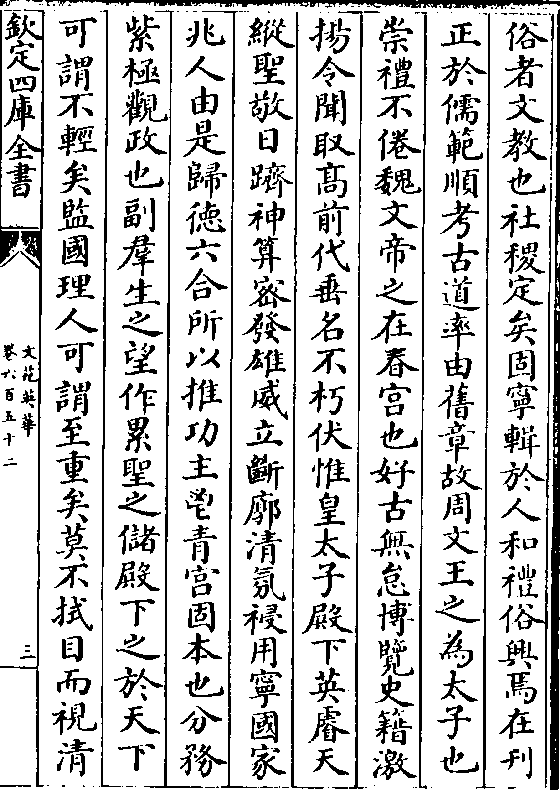 俗者文教也社稷定矣固寧輯於人和禮俗興焉在刋
正於儒範順考古道率由舊章故周文王之為太子也
崇禮不倦魏文帝之在春宫也好古無怠博覽史籍激
揚令聞取髙前代垂名不朽伏惟皇太子殿下英睿天
縱聖敬日躋神算密發雄威立斷廓清氛祲用寧國家
兆人由是歸徳六合所以推功主鬯青宫固本也分務
紫極觀政也副羣生之望作累聖之儲殿下之於天下
可謂不輕矣監國理人可謂至重矣莫不拭目而視清
欽定四庫全書
文苑英華
卷六百五十二
三